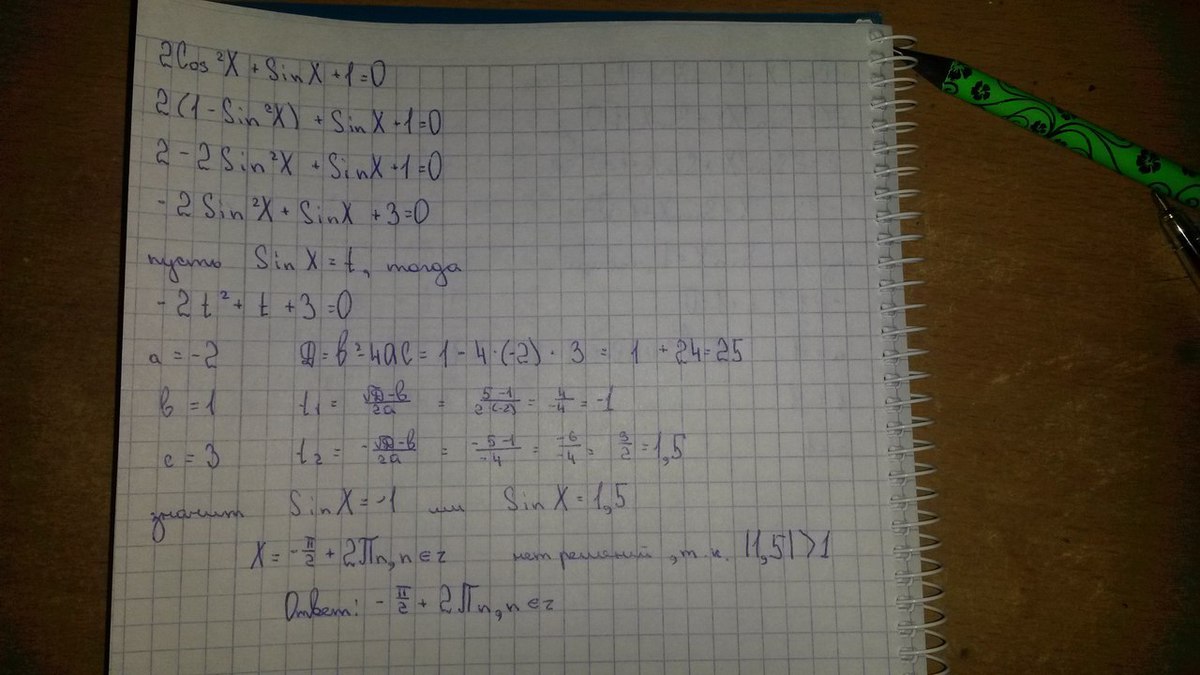 2Cos²X + SinX + 1 = 0
2(1 - Sin²X) + SinX + 1 = 0
2 - 2Sin²X + SinX + 1 = 0
- 2Sin²X + SinX + 3 = 0
пусть SinX = t, тогда
- 2t² + t + 3 = 0
a = -2 D = b² - 4ac = 1 - 4·(-2)·3 = 1 + 24 = 25
b = 1 t₁ = (√D - b)/2a = (5 - 1)/(2·(-2)) = 4/-4 = -1
c = 3 t₂ = (-√D - b)/2a = (-5 - 1)/-4 = -6/-4 = 3/2 = 1,5
значит SinX = -1 или SinX = 1,5
X = -π/2 + 2πn, n ∈ z нет решений, т.к. |1,5| > 1
Ответ: - π/2 + 2πn, n ∈ z